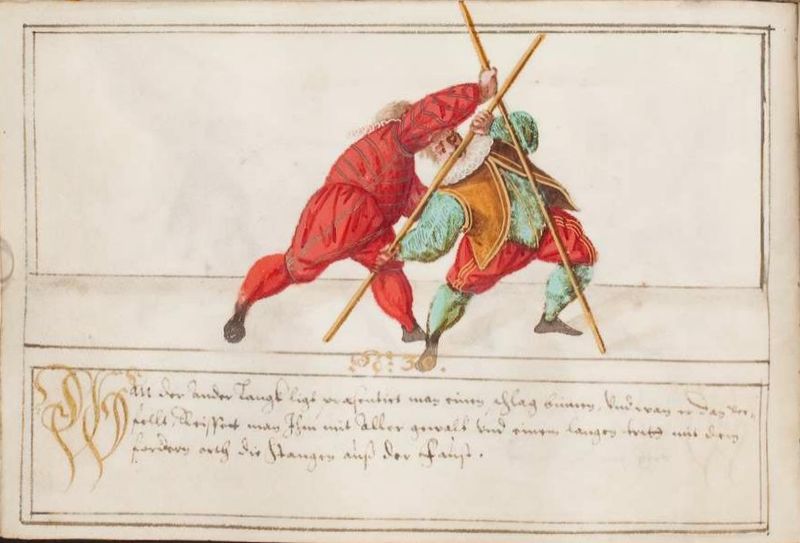 No: 30.
Wan der Ander Langs ligt, præsentiert man einen schlag binnen, Vnd wan er dan ver¬
sellt, Reisset man Ihm mit Aller gewalt Vnd einem langen tritt mit dem
fordern orth die Stangen auß der faust.